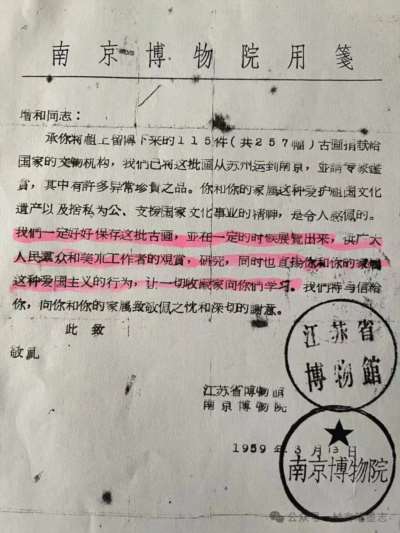 南京博物院用笺
增和同志：
承你将祖上留传下来的115件(共257幅)古画捐献给
国家的文物机构，我们已将这批画从苏州运到南京，並請专家鑑
賞，其中有許多异常珍貴之品。你和你的家属这种爱护祖国文化
遗产以及捨私为公、支援国家文化事业的精神，是令人感佩的。
我們一定好好保存这批古画，並在一定的时候展览出来，供广大
人民羣众和美术工作者的观賞，研究，同时也宣揚你和你的家属
这种爱国主义的行为，让一切收藏家向你們学习。我們特与信給
你，向你和你的家属致敬佩之忱和深切的謝意。
此致
敬礼
江苏省博物館
南京博物院
1959年3月13日
江苏省
博物館
南京博物院
公众号